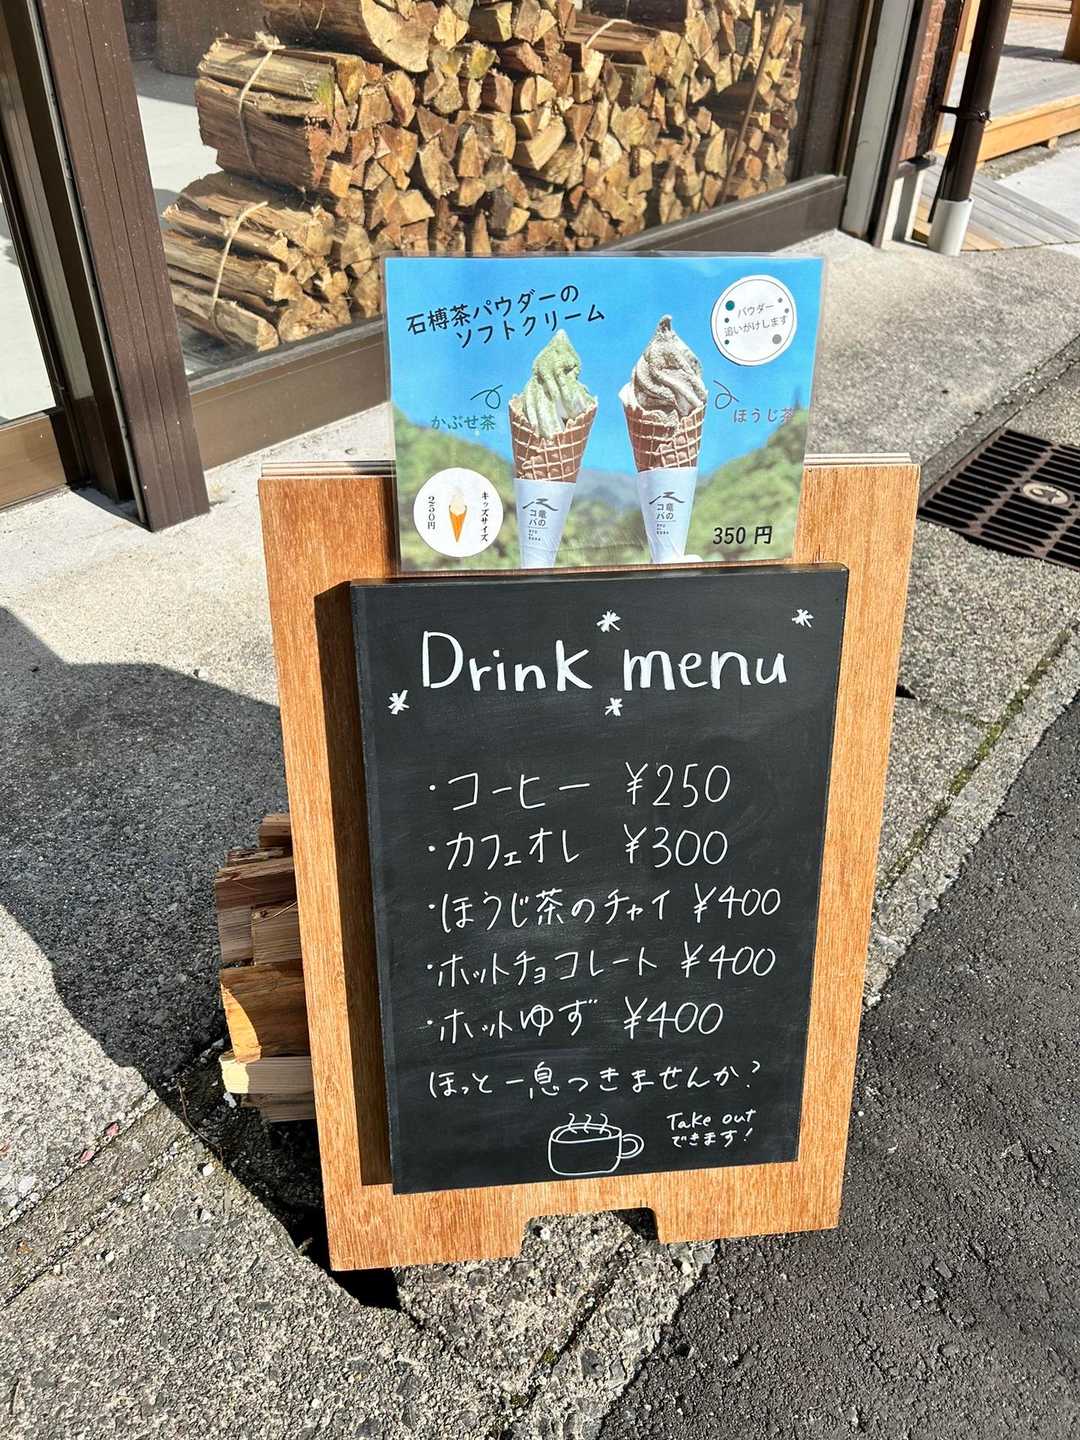 石榑茶パウダーの
ソフトクリーム
パウダー
追いがけします
かぶせ茶
ほうじ茶
キッズサイズ
250円
竜の
コバ
竜の
コバ
350 円
Drink menu
・コーヒー ¥250
・カフェオレ ¥300
・ほうじ茶のチャイ ¥400
・ホットチョコレート ¥400
・ホットゆず ¥400
ほっと一息つきませんか?
Take out
できます!